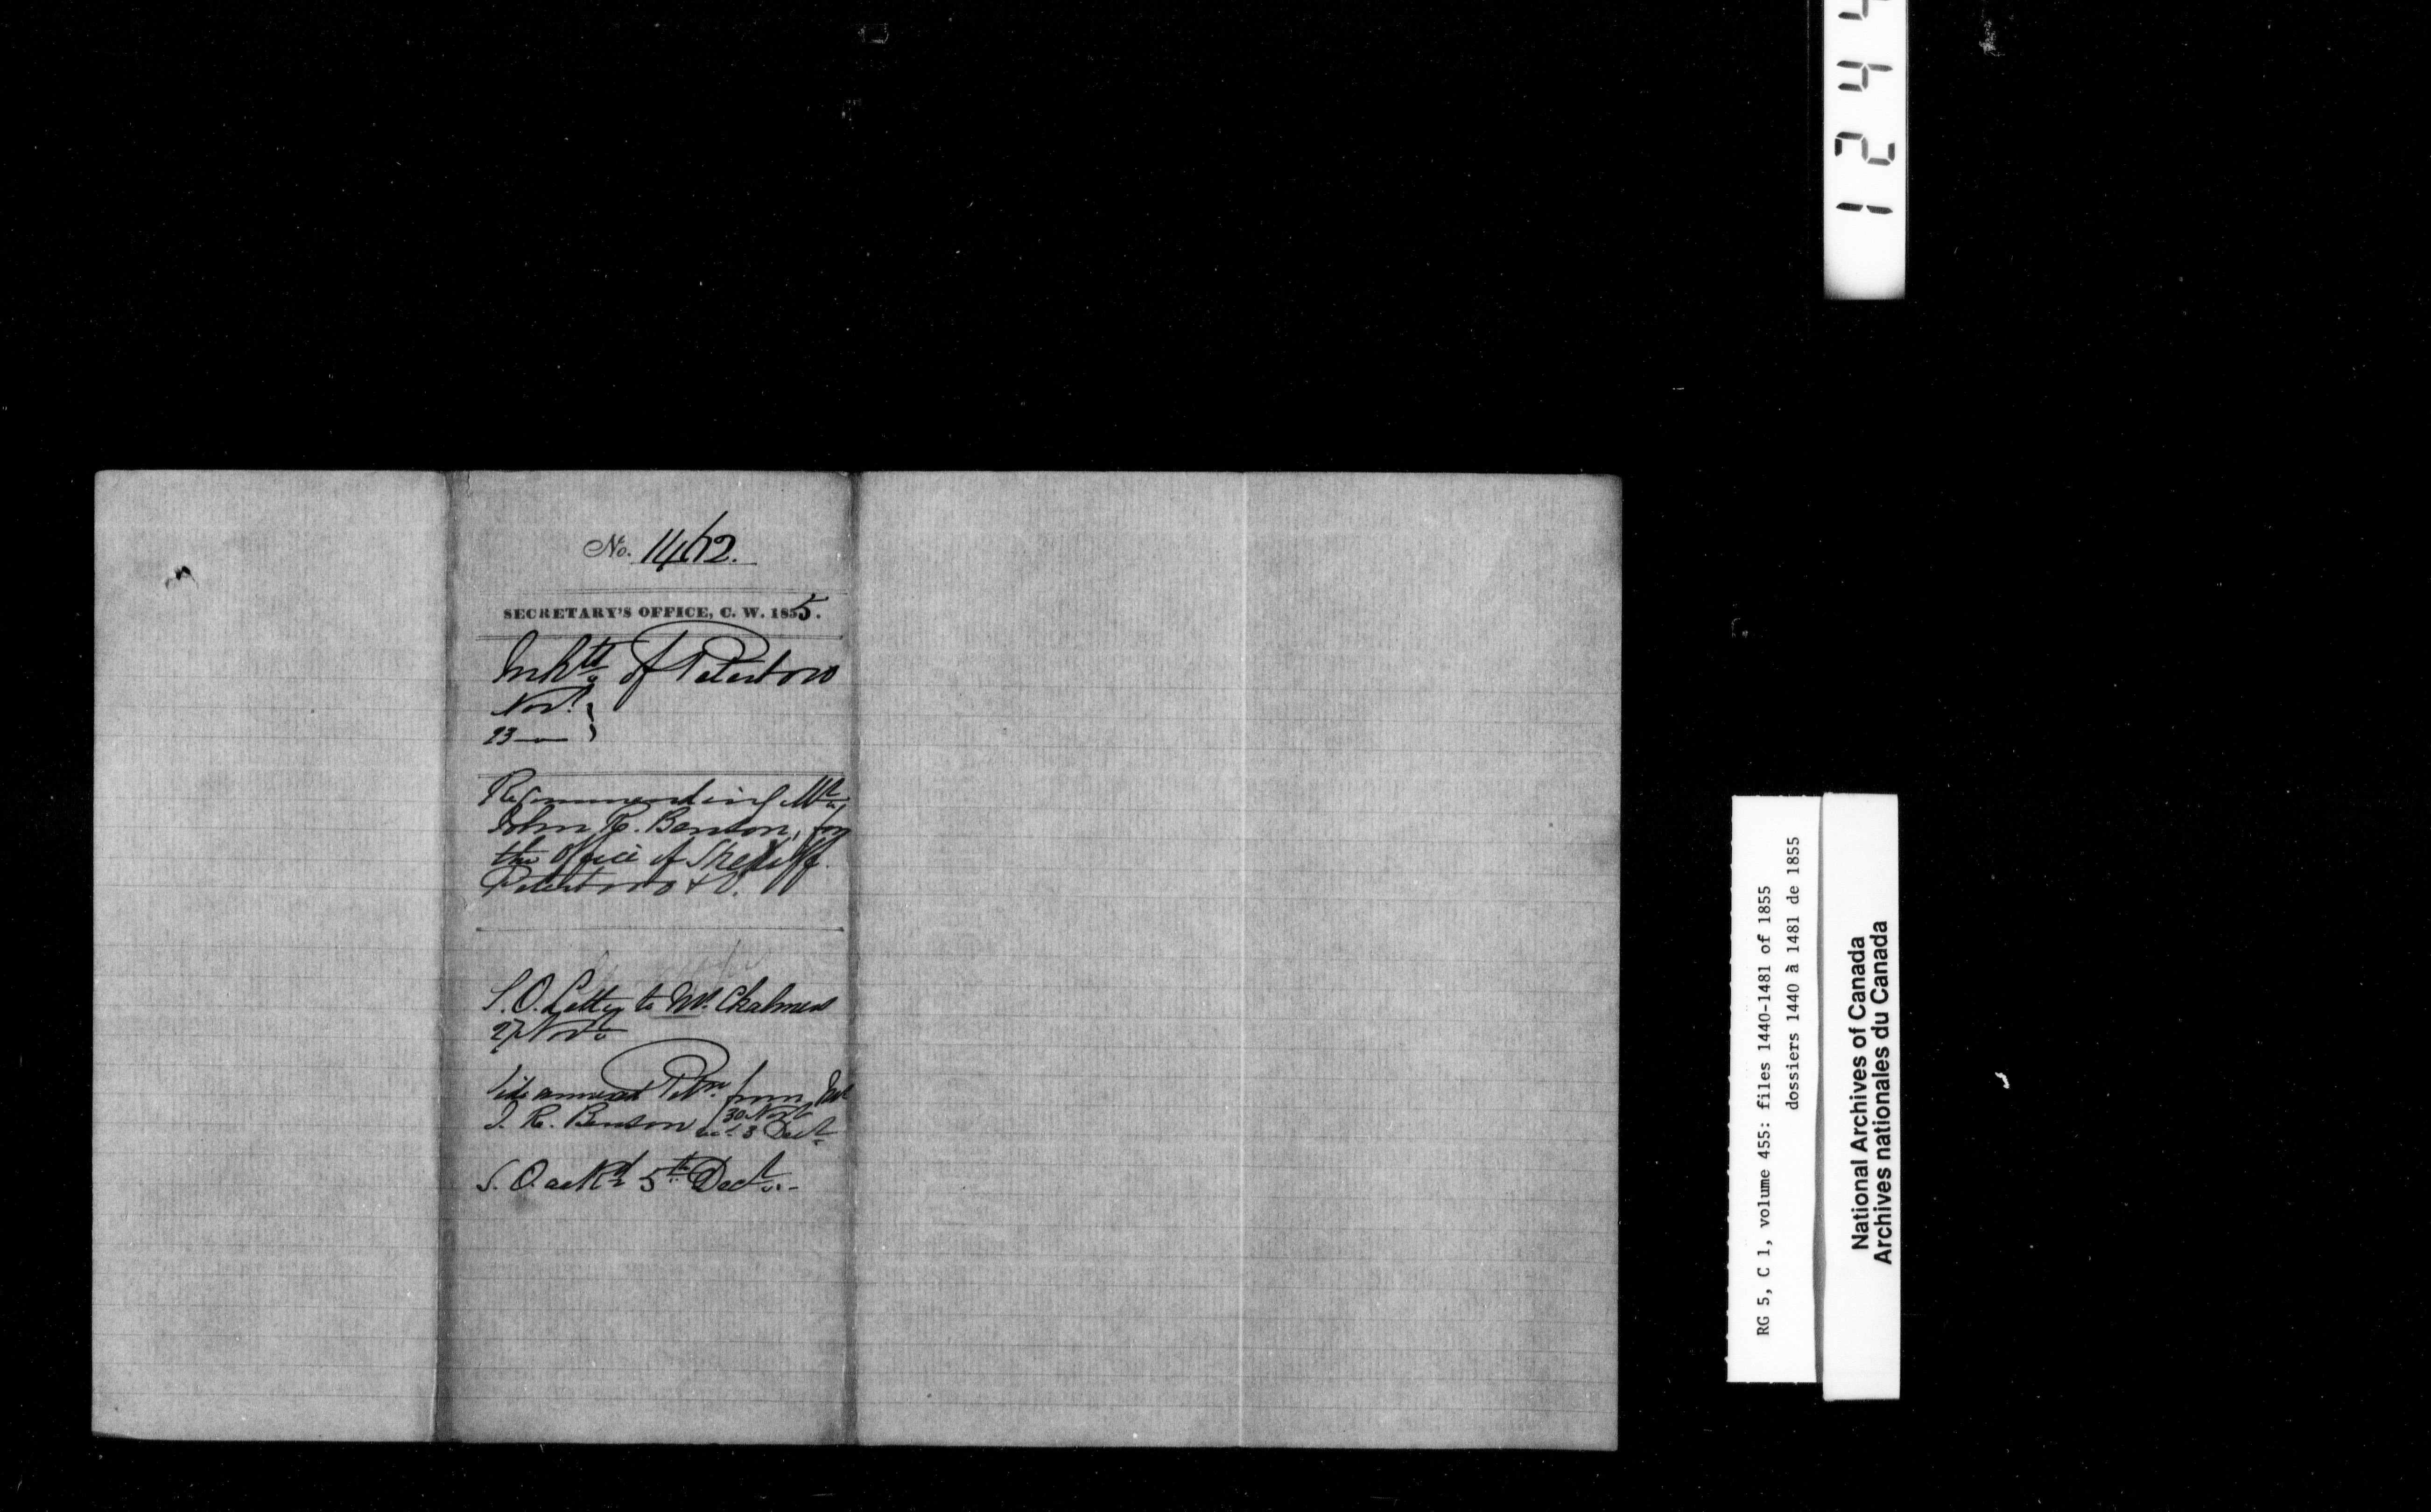 No. 1462.
SECRETARY'S OFFICE, C. W. 1855.
Inhts of Peterboro
Novr
23
Recommending Mr
John R. Benson, for
the office of Sheriff
Peterboro & V.
S.O. Letter to Mr. Chalmers
27 Novr
Vide annexed Petn. from Mr
J. R. Benson 30 Novr
3 Decr
S. O. ackd 5th Decr.
1 2 4 4
RG 5, C 1, volume 455: files 1440-1481 of 1855
dossiers 1440 à 1481 de 1855
National Archives of Canada
Archives nationales du Canada